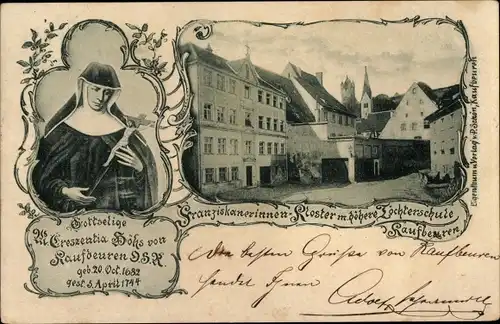 Gottselige
M. Creszentia Höss von
Kaufbeuren O.S.F.
geb 20. Oct. 1682
gest. 5. April 1744
Franziskanerinnen-Kloster m. höhere Töchterschule
Kaufbeuren
Eigenthum u. Verlag v. Kaufbeuren
Die besten Grüße von Kaufbeuren
sendet Ihnen
Adolf